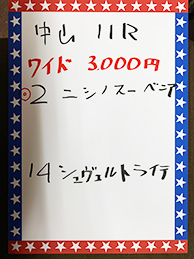 中山 11R
ワイド 3.000円
◎2 ニシノスーベニア
14 シュヴェルトライテ